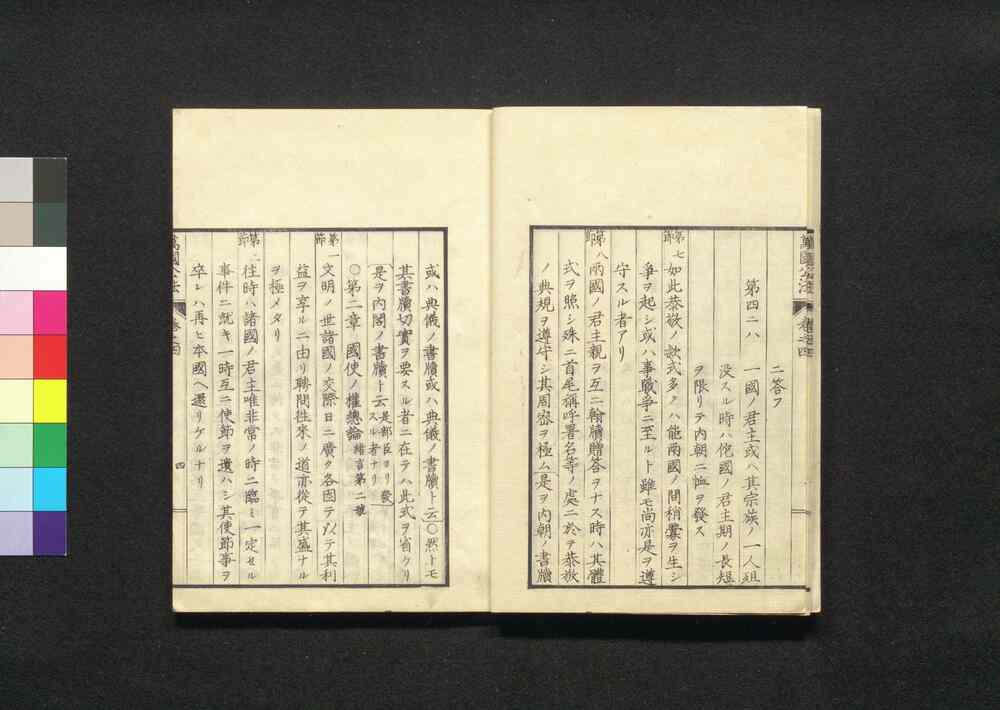 萬國公法 卷之四
ニ答フ
第四ニハ 一國ノ君主或ハ其宗族ノ一人殂
沒スル時ハ佗國ノ君主期ノ長短
ヲ限リテ内朝ニ訃ヲ發ス
第七節 如此恭敬ノ款式多クハ能兩國ノ間稍釁ヲ生シ
爭ヲ起シ或ハ事戰爭ニ至ルト雖モ尚亦是ヲ遵
守スル者アリ
第八節 兩國ノ君主親ヲ互ニ翰牘贈答ヲナス時ハ其體
式ヲ照シ殊ニ首尾稱呼署名等ノ處ニ於テ恭敬
ノ典規ヲ遵守シ其周密ヲ極ム是ヲ内朝ノ書牘
或ハ典儀ノ書牘或ハ典儀ノ書牘ト云○然トモ
其書牘切實ヲ要スル者ニ在テハ此式ヲ省クリ
是ヲ内閣ノ書牘ト云 是部臣ヨリ發スル者ナリ
○第二章 國使ノ權總論 緒言第二號
第一節 文明ノ世諸國ノ交際日ニ廣ク各因テ以テ其利
益ヲ享ルニ由リ聘問徃來ノ道亦從テ其盛ナル
ヲ極メタリ
第二節 往時ハ諸國ノ君主唯非常ノ時ニ臨ミ一定セル
事件ニ就キ一時互ニ使節ヲ遣ハシ其使節事ヲ
卒レハ再ヒ本國ヘ還リケルナリ
四
萬國公法 卷之四